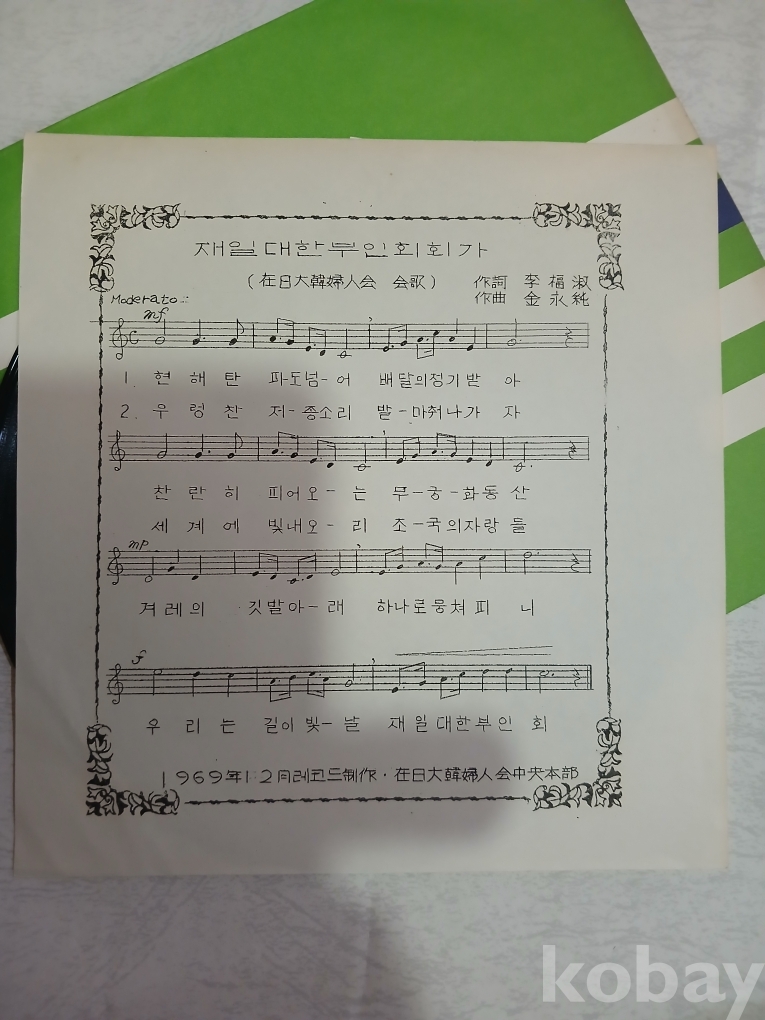 재일대한부인회회가
(在日大韓婦人会 会歌) 作詞 李福淑
Moderato 作曲 金永純
mf
1. 현해탄 파도넘-어 배달의정기받아
2. 우렁찬 저-종소리 발-마춰나가자
찬란히 피어오-는 무-궁-화동산
세계에 빛내오-리 조-국의자랑들
mp
겨레의 깃발아-래 하나로뭉쳐피니
f
우리는 길이빛-날 재일대한부인회
1969年12月레코드制作·在日大韓婦人会中央本部
kobay